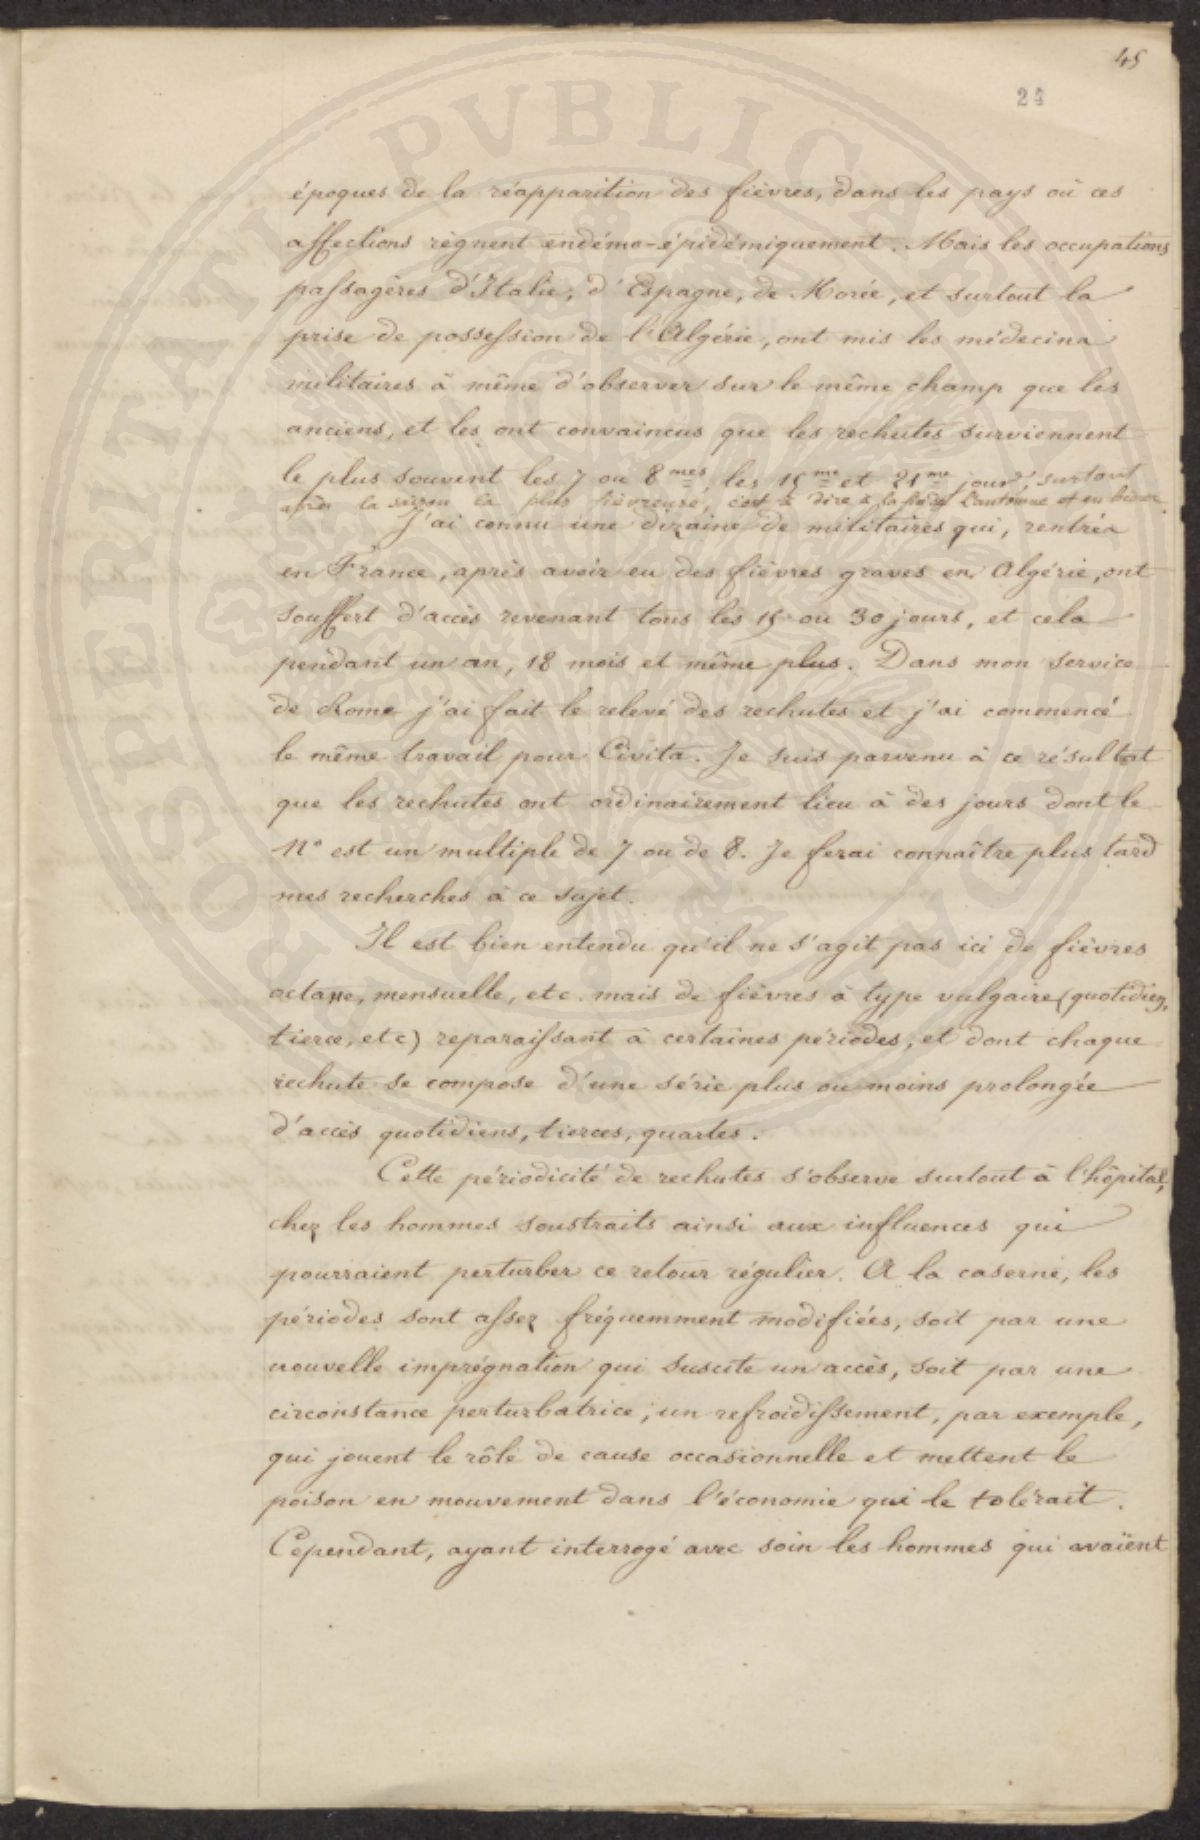 45
24
époques de la réapparition des fièvres, dans les pays où ces
affections règnent endémo-épidémiquement. Mais les occupations
passagères d'Italie, d'Espagne, de Morée, et surtout la
prise de possession de l'Algérie, ont mis les médecins
militaires à même d'observer sur le même champ que les
anciens, et les ont convaincus que les rechutes surviennent
le plus souvent les 7 ou 8mes, les 15me et 21me jours, surtout
après la saison la plus fièvreuse, c'est à dire à la fin de l'automne et en hiver.
J'ai connu une dizaine de militaires qui, rentrés
en France, après avoir eu des fièvres graves en Algérie, ont
souffert d'accès revenant tous les 15 ou 30 jours, et cela
pendant un an, 18 mois et même plus. Dans mon service
de Rome j'ai fait le relevé des rechutes et j'ai commencé
le même travail pour Civita. Je suis parvenu à ce résultat
que les rechutes ont ordinairement lieu à des jours dont le
N° est un multiple de 7 ou de 8. Je ferai connaître plus tard
mes recherches à ce sujet.
Il est bien entendu qu'il ne s'agit pas ici de fièvres
octane, mensuelle, etc. mais de fièvres à type vulgaire (quotidien,
tierce, etc) reparaissant à certaines périodes, et dont chaque
rechute se compose d'une série plus ou moins prolongée
d'accès quotidiens, tierces, quartes.
Cette périodicité de rechutes s'observe surtout à l'hôpital,
chez les hommes soustraits ainsi aux influences qui
pourraient perturber ce retour régulier. A la caserne, les
périodes sont assez fréquemment modifiées, soit par une
nouvelle imprégnation qui suscite un accès, soit par une
circonstance perturbatrice, un refroidissement, par exemple,
qui jouent le rôle de cause occasionnelle et mettent le
poison en mouvement dans l'économie qui le tolérait.
Cependant, ayant interrogé avec soin les hommes qui avaient
PROSPERITATI PVBLICAE AVGENDAE